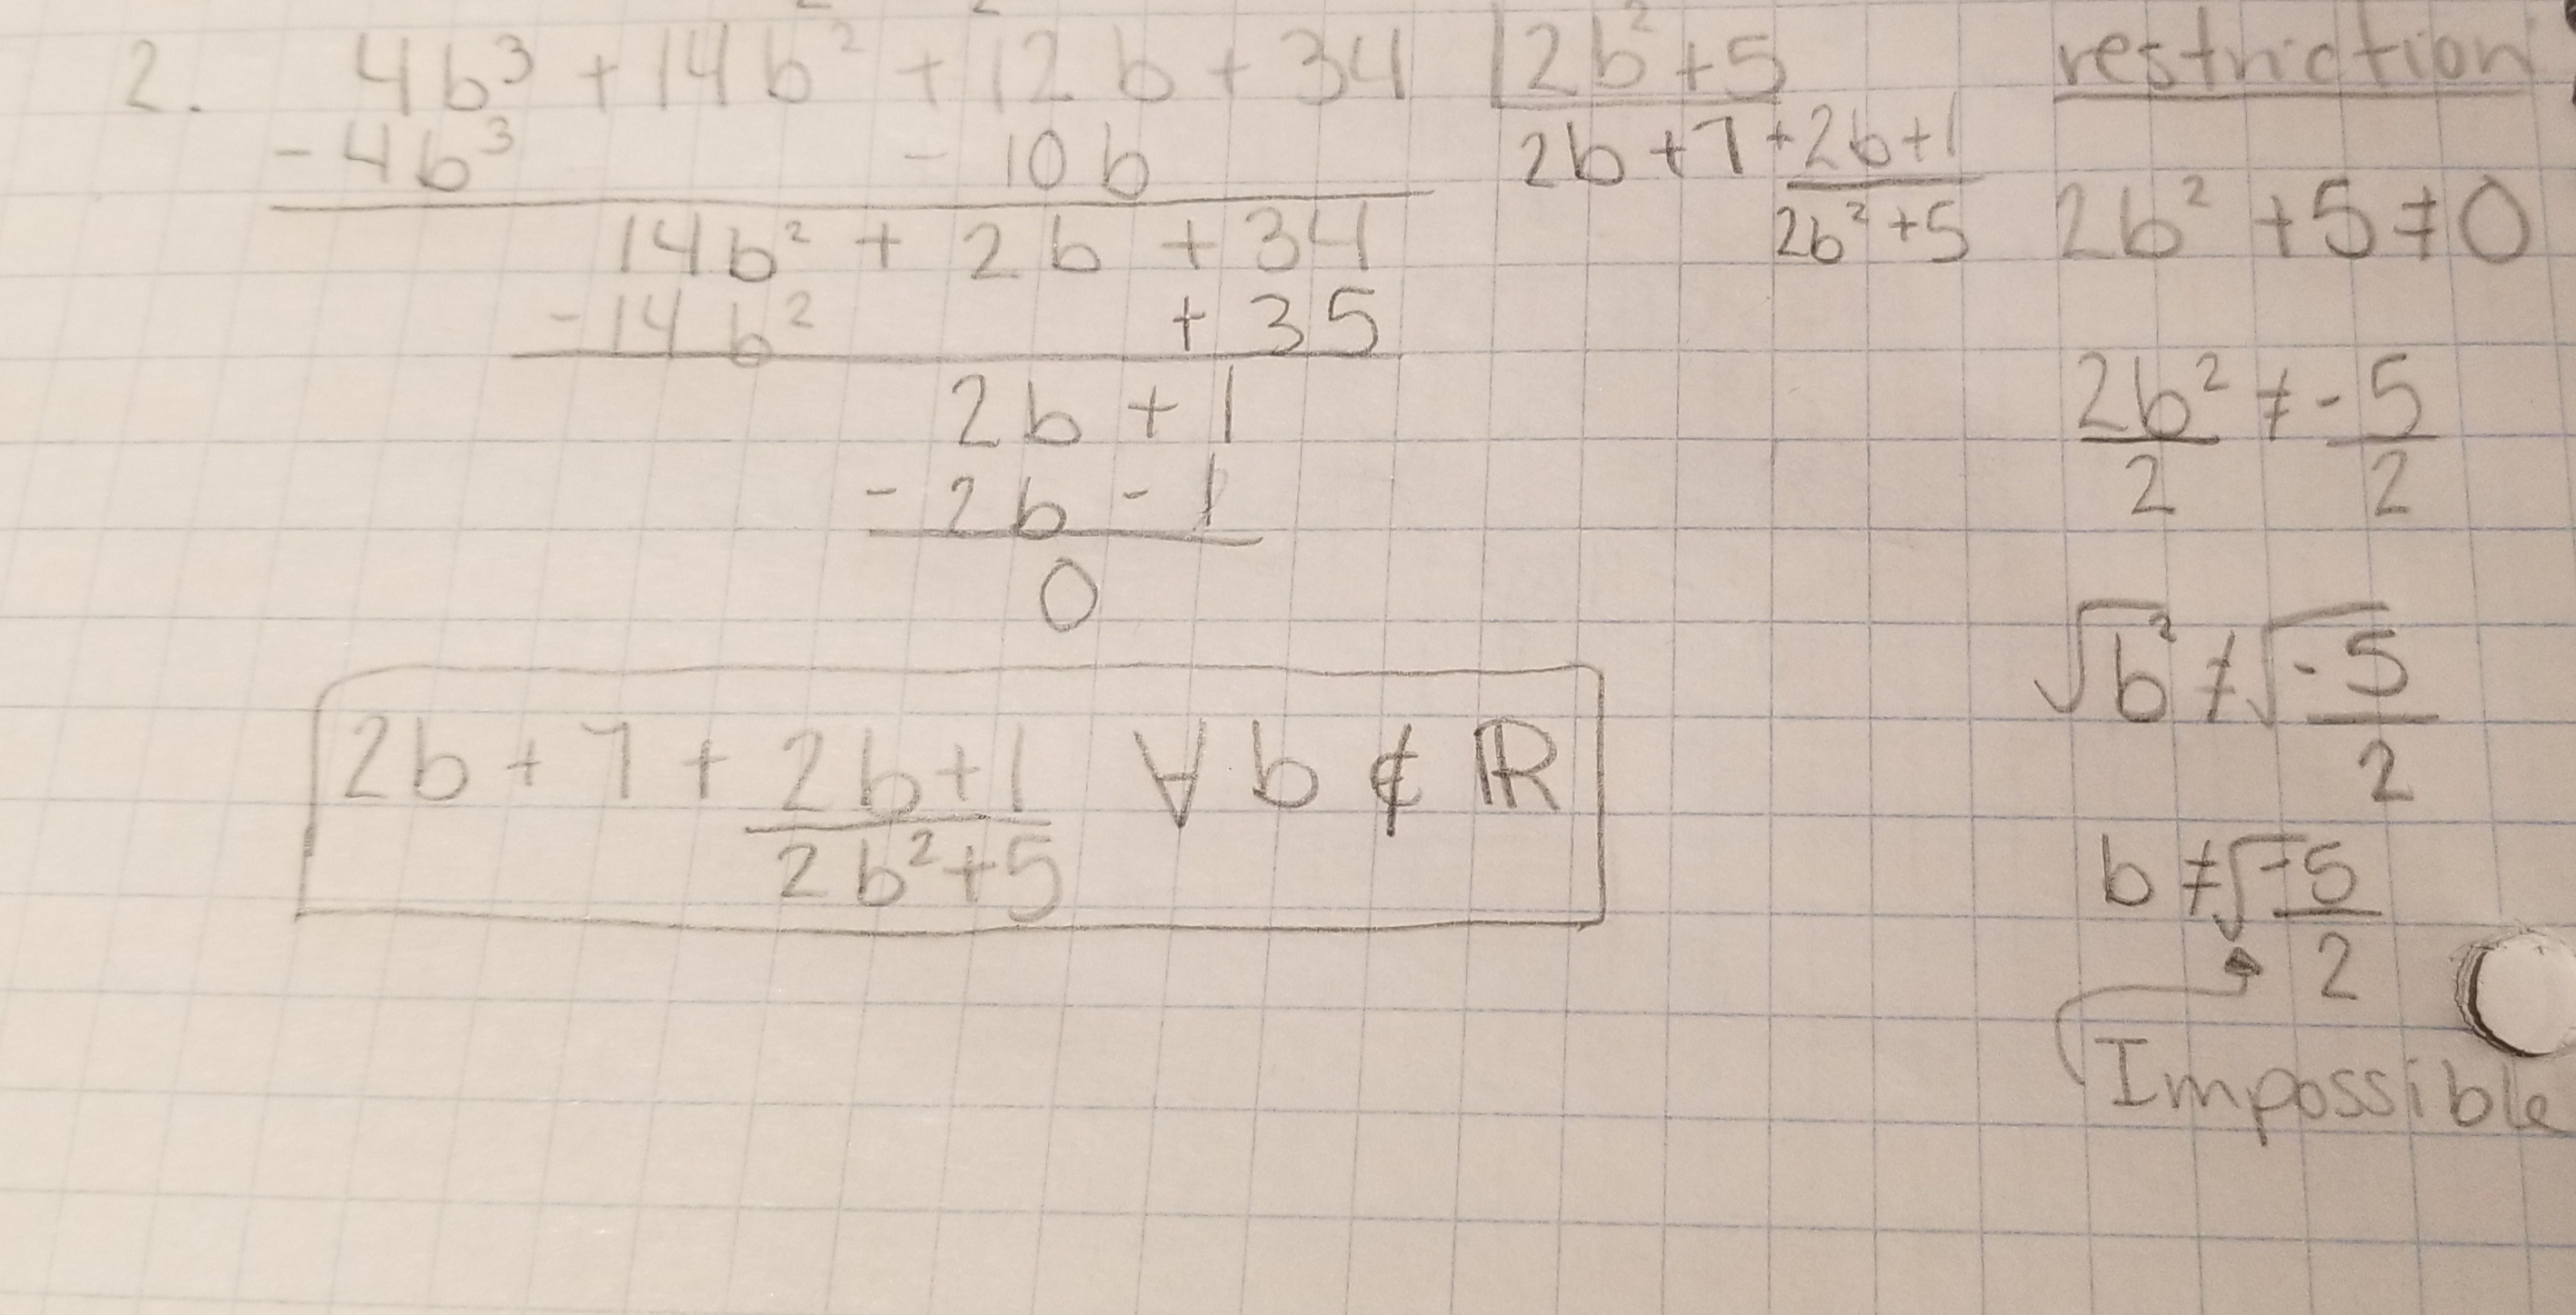 2. 4b³ + 14b² + 12b + 34 |2b² + 5
- 4b³ - 10b 2b + 7 + (2b+1)/(2b²+5)
14b² + 2b + 34
- 14b² + 35
2b + 1
- 2b - 1
0
2b + 7 + (2b+1)/(2b²+5) ∀ b ∉ ℝ
restriction
2b² + 5 ≠ 0
2b²/2 ≠ -5/2
√b² ≠ √-5/2
b ≠ √-5/2
Impossible